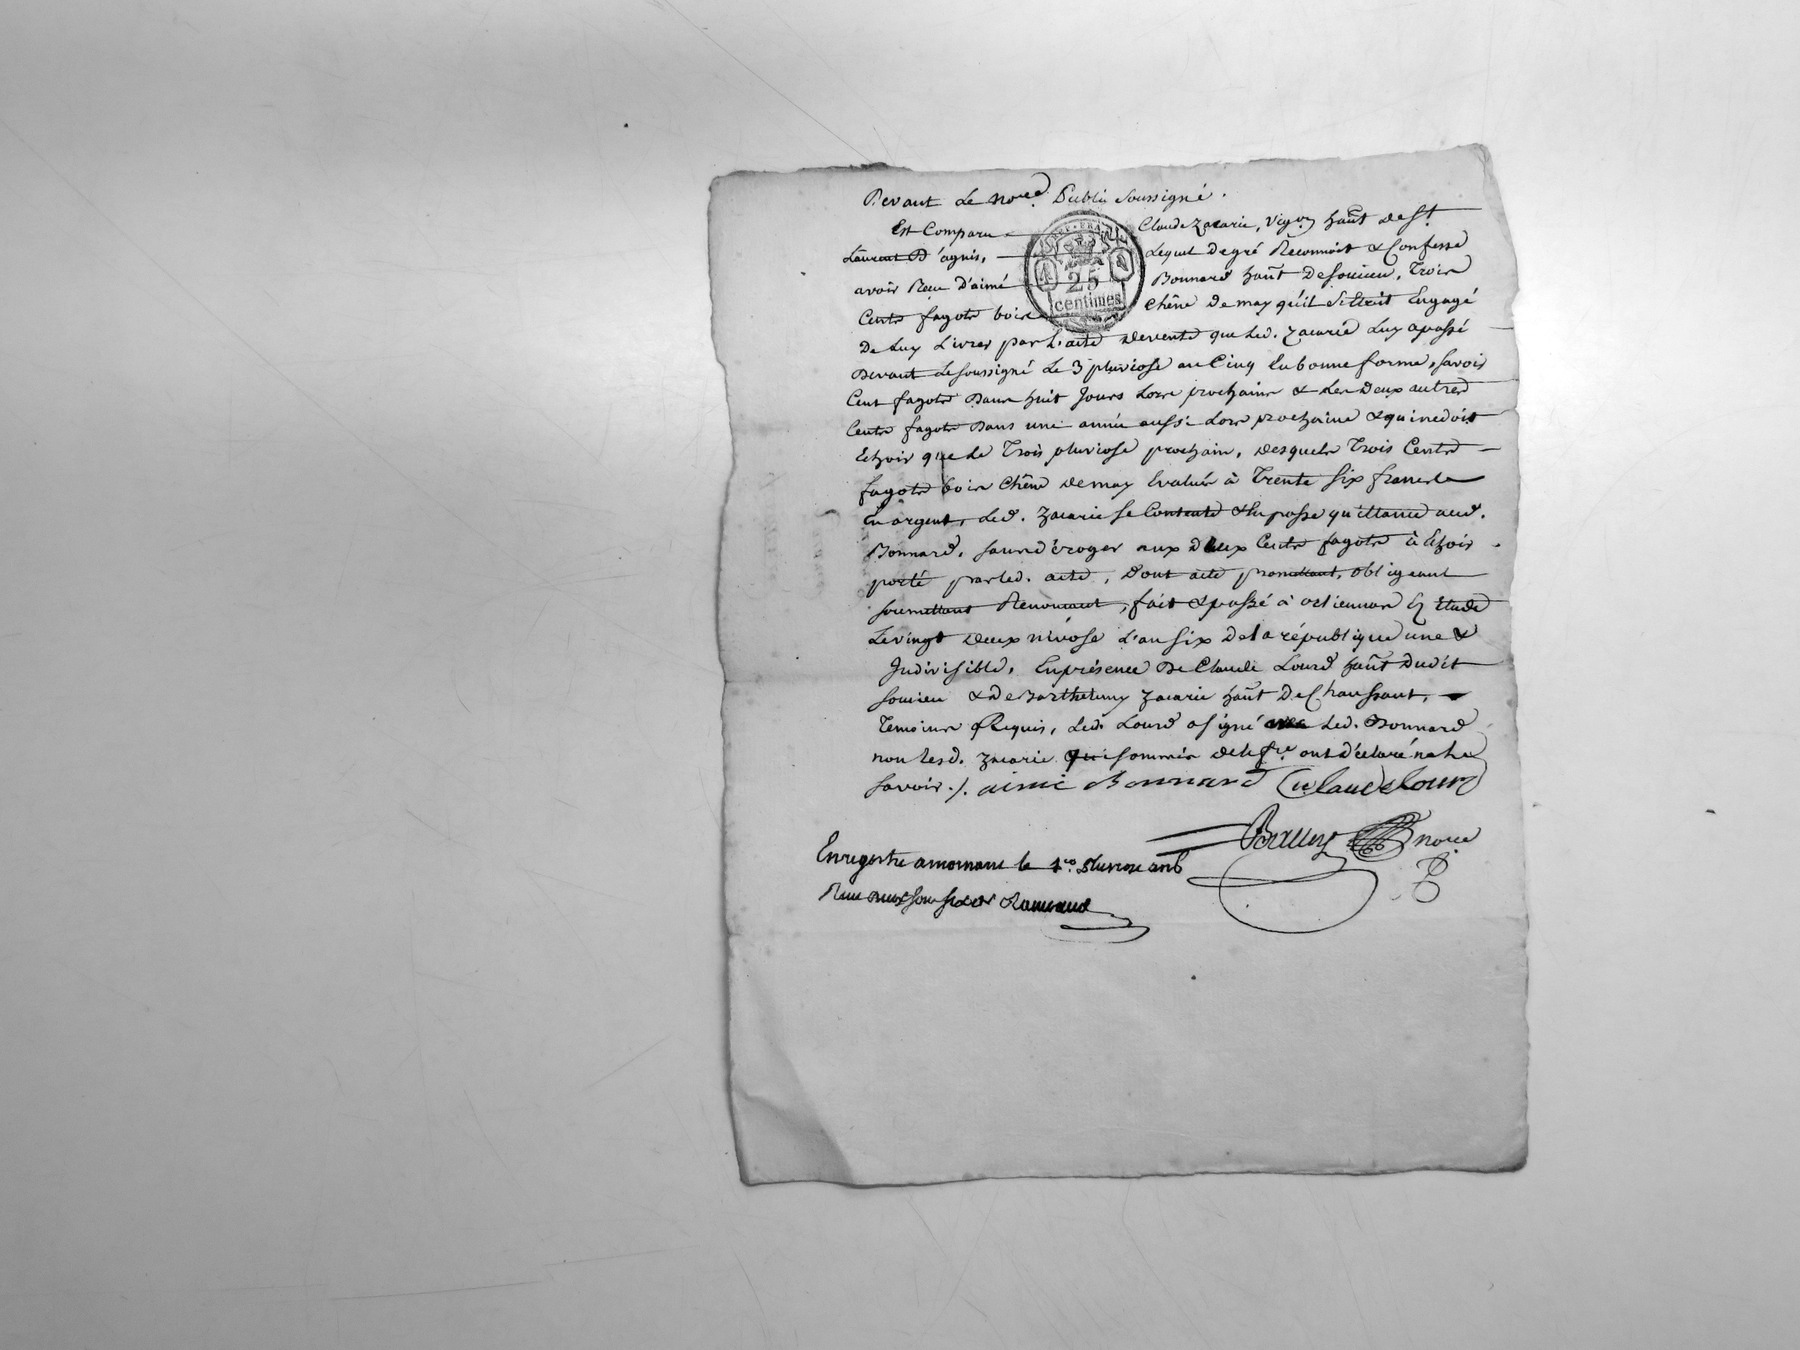 Devant Le no.re Public Soussigné.
Est Comparu Claude Zacarie, Vign. hañt de St
Laurent D'agnis, Lequel de gré Reconnoit & Confesse
avoir Reçu d'aimé Bonnard hañt de soucieu, Trois
Cents fagots bois Chêne de may qu'il s'étoit Engagé
De Luy Livrer par L'acte de vente que Led. Zacarie Luy a passé
Devant Le soussigné Le 3 pluviose an Cinq En bonne forme, savoir
Cent fagots Dans huit Jours Lors prochains & Les Deux autres
Cents fagots Dans une année aussi Lors prochaine & qui ne doit
Echoir que le Trois pluviose prochain, desquels Trois Cents
fagots bois Chêne de may Evalués à Trente Six francs
En argent, Led. Zacarie se Contente & En passe quittance aud.
Bonnard, sans déroger aux deux Cents fagots à Echoir
porté par led. acte, Dont acte promettant, obligeant
soumettant Renonçant, fait & passé à orliennas En Etude
Le vingt deux nivose L'an six de la république une &
Indivisible, En présence De Claude Lourd hañt dudit
soucieu & De Barthelemy Zacarie hañt De Chaussant,
Temoins Requis, Led. Lourd a signé avec Led. Bonnard
non Lesd. Zacarie qui sommés de le fre ont déclaré ne le
savoir ./. aimé Bonnard Claude Lour
no.re
Enregistré a mornant le 1.er Pluviose an 6
25
centimes